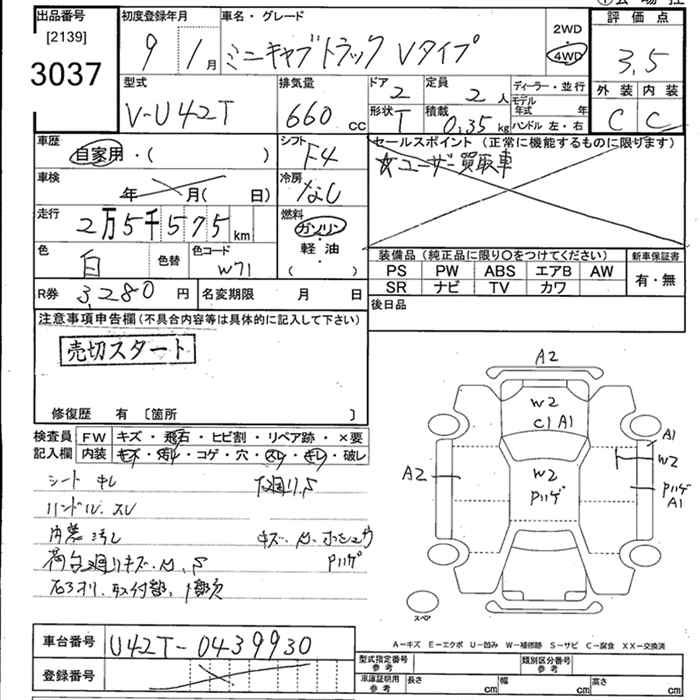 出品番号
[2139]
3037
初度登録年月
9 1月
車名・グレード
ミニキャブトラック Vタイプ
2WD
4WD
評価点
3.5
型式
V-U42T
排気量
660 cc
ドア 2
定員 2人
形状 T
積載 0.35 kg
ディーラー・並行
モデル年式 年
ハンドル 左・右
外装 内装
C C
車歴
自家用・( )
シフト
F4
セールスポイント (正常に機能するものに限ります)
☆ユーザー買取車
車検
年 月( 日)
冷房
なし
走行
2万5千575km
燃料
ガソリン・
軽油
( )
色
白
色替
色コード
W71
装備品 (純正品に限り○をつけてください)
新車保証書
PS PW ABS エアB AW
SR ナビ TV カワ
有・無
R券 3,280円
名変期限 月 日
後日品
注意事項申告欄 (不具合内容等は具体的に記入して下さい)
売切スタート
修復歴 有〔箇所 〕
検査員
記入欄
FW キズ・飛石・ヒビ割・リペア跡・×要
内装 キズ・汚レ・コゲ・穴・スレ・キレ・破レ
シート キレ
ハンドル、スレ
内装 汚レ
A2
W2
C1 A1
A2
W2
Pハゲ
A1
W2
Pハゲ
A1
スペア
A-キズ E-エクボ U-凹み W-補修跡 S-サビ C-腐食 XX-交換済
車台番号
U42T-0439930
登録番号
型式指定番号
参考
類別区分番号
参考
車庫証明用
参考
長さ cm 幅 cm 高さ cm